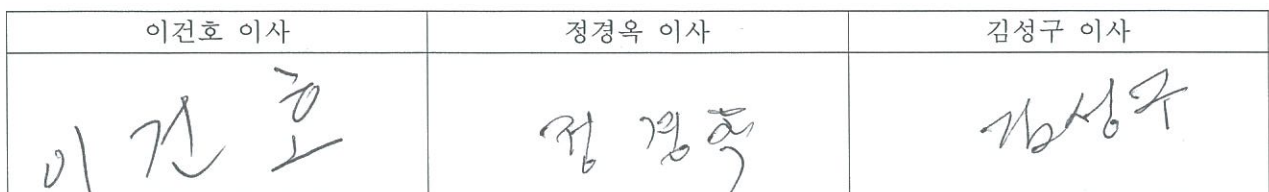 이건호 이사 정경옥 이사 김성구 이사
이 건 호 정 경옥 김성구